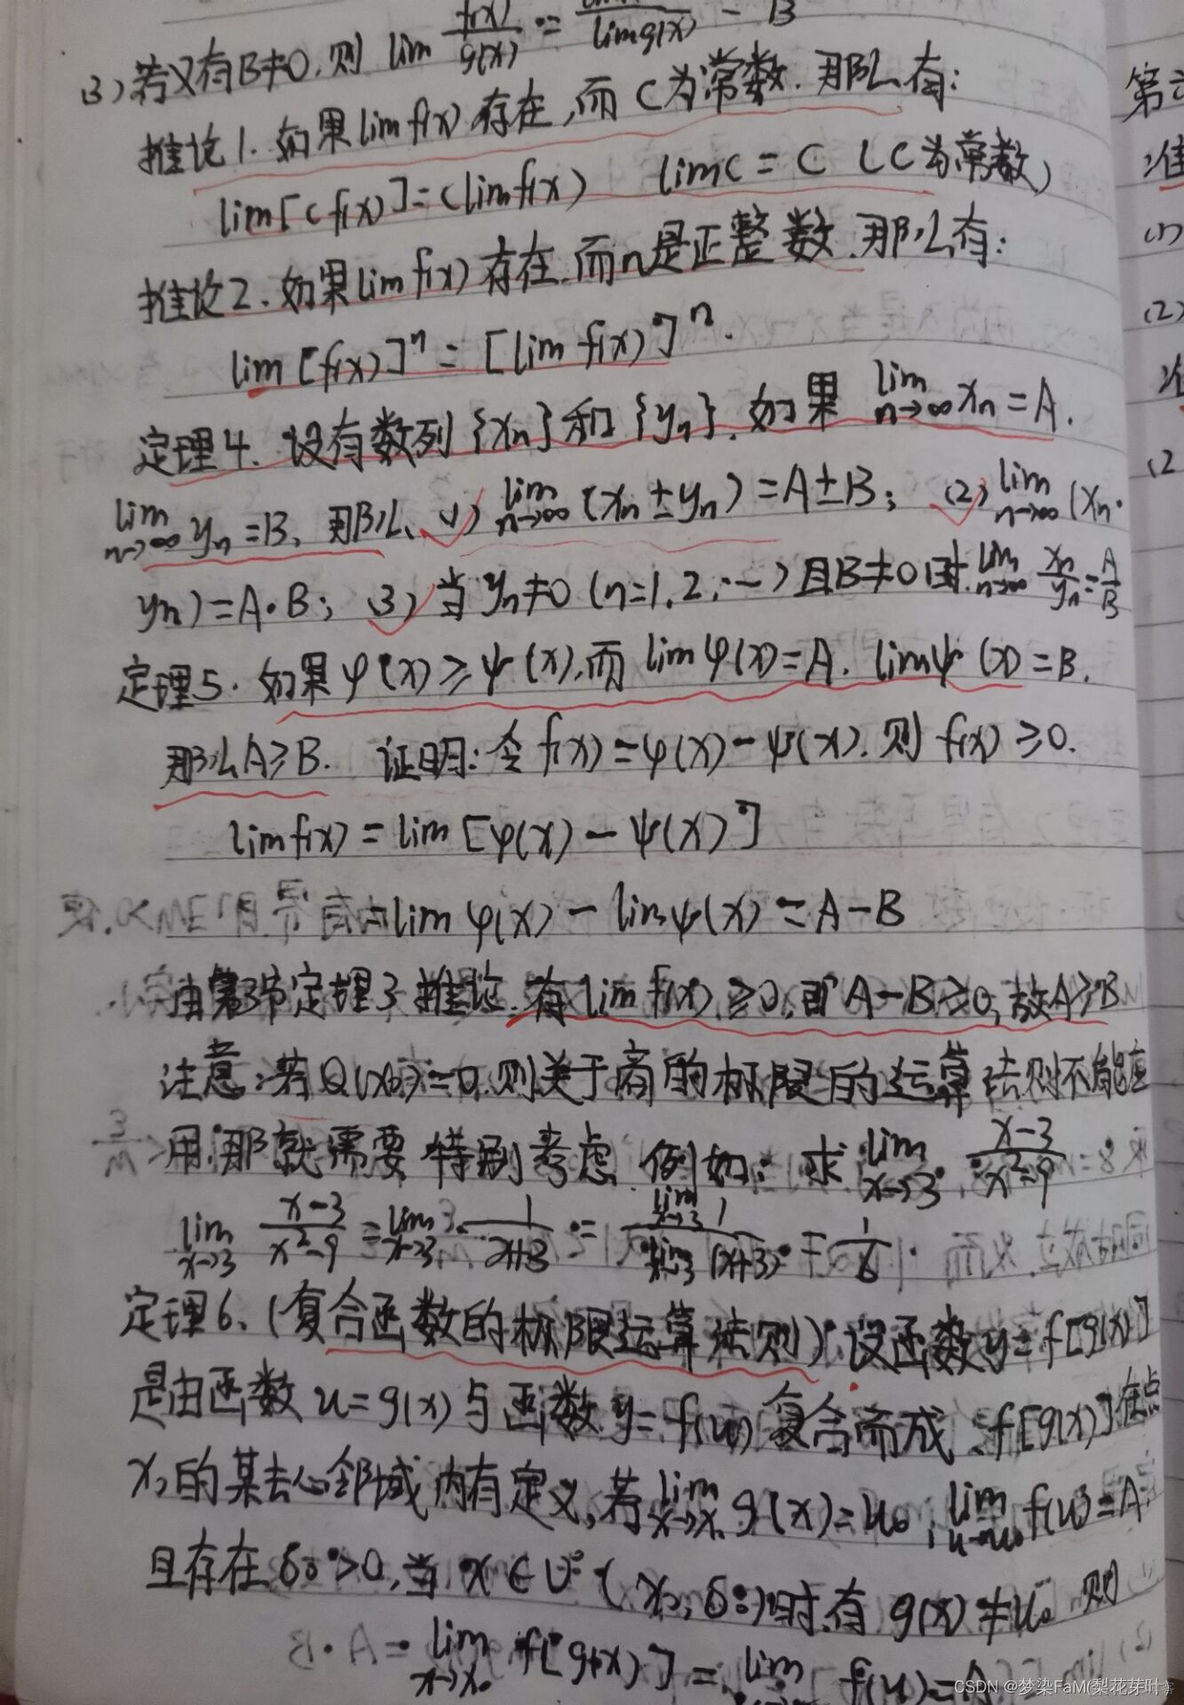 (3) 若又有B≠0, 则 lim f(x)/g(x) = lim g(x) = B
推论1. 如果lim f(x) 存在, 而 C为常数. 那么有:
lim[c f(x)] = c lim f(x)  lim c = C (C为常数)
推论2. 如果lim f(x) 存在. 而n是正整数. 那么有:
lim [f(x)]ⁿ = [lim f(x)]ⁿ.
定理4. 设有数列 {xn}和{yn}. 如果 lim n→∞ xn = A.
lim n→∞ yn = B, 那么 (1) lim n→∞ (xn ± yn) = A ± B; (2) lim n→∞ (xn·
yn) = A·B; (3) 当 yn≠0 (n=1,2,…) 且B≠0时. lim n→∞ xn/yn = A/B
定理5. 如果 φ(x) ≥ ψ(x), 而 lim φ(x) = A. lim ψ(x) = B.
那么A≥B. 证明: 令 f(x) = φ(x) - ψ(x). 则 f(x) ≥ 0.
lim f(x) = lim [φ(x) - ψ(x)]
= lim φ(x) - lim ψ(x) = A - B
由第3节定理3 推论. 有 lim f(x) ≥ 0, 即 A-B≥0, 故A≥B
注意: 若Q(x0)=0. 则关于商的极限的运算法则不能应
用. 那就需要 特别考虑. 例如: 求 lim x→3 x-3/x²-9
lim x→3 x-3/x²-9 = lim x→3 1/x+3 = lim x→3 1/lim x→3 (x+3) = 1/6
定理6. (复合函数的极限运算法则) 设函数y=f[g(x)]
是由函数 u=g(x) 与函数 y=f(u) 复合而成, f[g(x)]在点
x0的某去心邻域内有定义, 若 lim x→x0 g(x) = u0, lim u→u0 f(u) = A,
且存在 δ0>0, 当 x∈U°(x0, δ0)时. 有 g(x)≠u0 则
lim x→x0 f[g(x)] = lim f(u) = A
第
推
(1)
(2)
(2
CSDN @梦染FaM(梨花芽叶